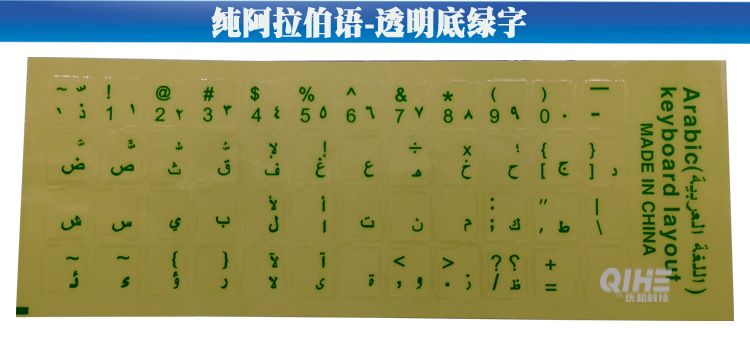 纯阿拉伯语-透明底绿字
~ ّ ! @ # $ % ^ & * ( ) —
١ ذ 1 ١ 2 ٢ 3 ٣ 4 ٤ 5 ٥ 6 ٦ 7 ٧ 8 ٨ 9 ٩ 0 ٠ -
÷ x { }
ض ص ث ق ف غ ع ه خ ح [ ج ] د
: " |
ش س ي ب ل ا ت ن م ك ; ط , \
~ ~ { } لآ آ < > ? ؟ +
ئ ء ؤ ر لا ى ة و , ز . ظ / =
Arabic(اللغة العربية)
keyboard layout
MADE IN CHINA
QIHE